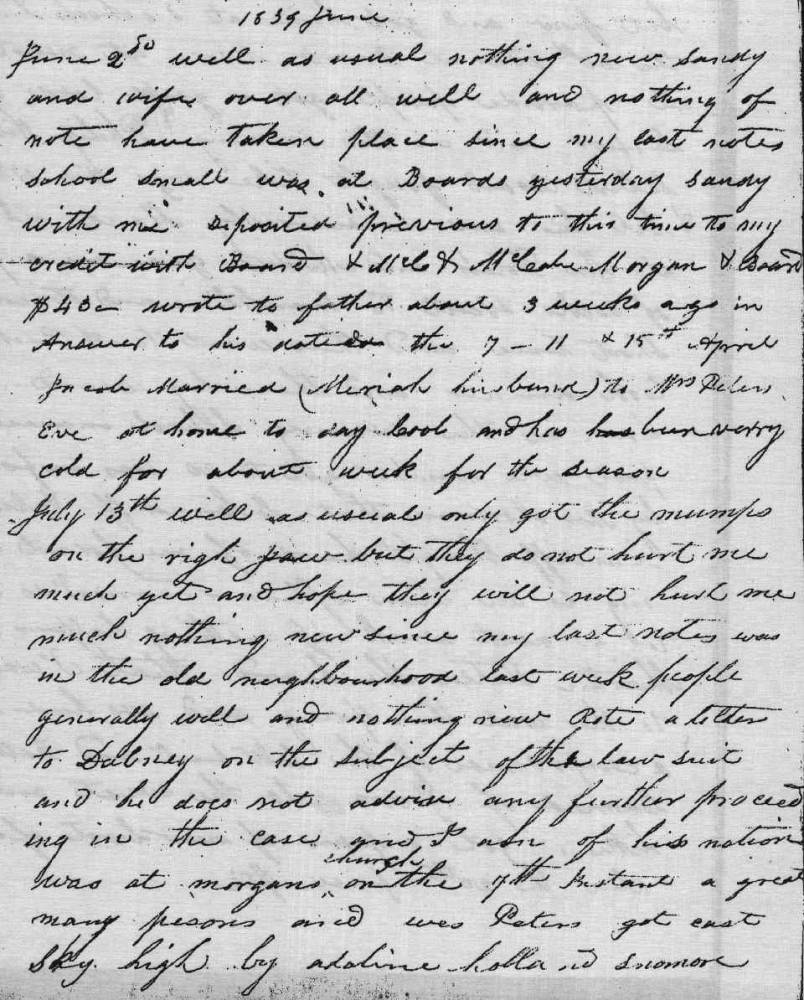 1839 June
June 2nd well as usual nothing new Sandy
and wife over all well and nothing of
note have taken place since my last notes
school small was at Boards yesterday Sandy
with me Deposited previous to this time to my
credit with Board & McC & McCabe Morgan & Board
$40 wrote to father about 3 weeks ago in
Answer to his dated the 7 - 11 & 15th April
Jacob Married (Meriah husband) to Mrs Peters
Eve at home to day Cool and has been verry
cold for about week for the season
July 13th well as usual only got the mumps
on the righ jaw but they do not hurt me
much yet and hope they will not hurt me
much nothing new since my last notes was
in the old neighbourhood last week people
generally well and nothing new Rote a letter
to Dabney on the subject of the law suit
and he does not advise any further proceed
ing in the case and I am of his notion
was at morgans church on the 7th Instant a great
many pesons and Peters got cast
sky high by adaline